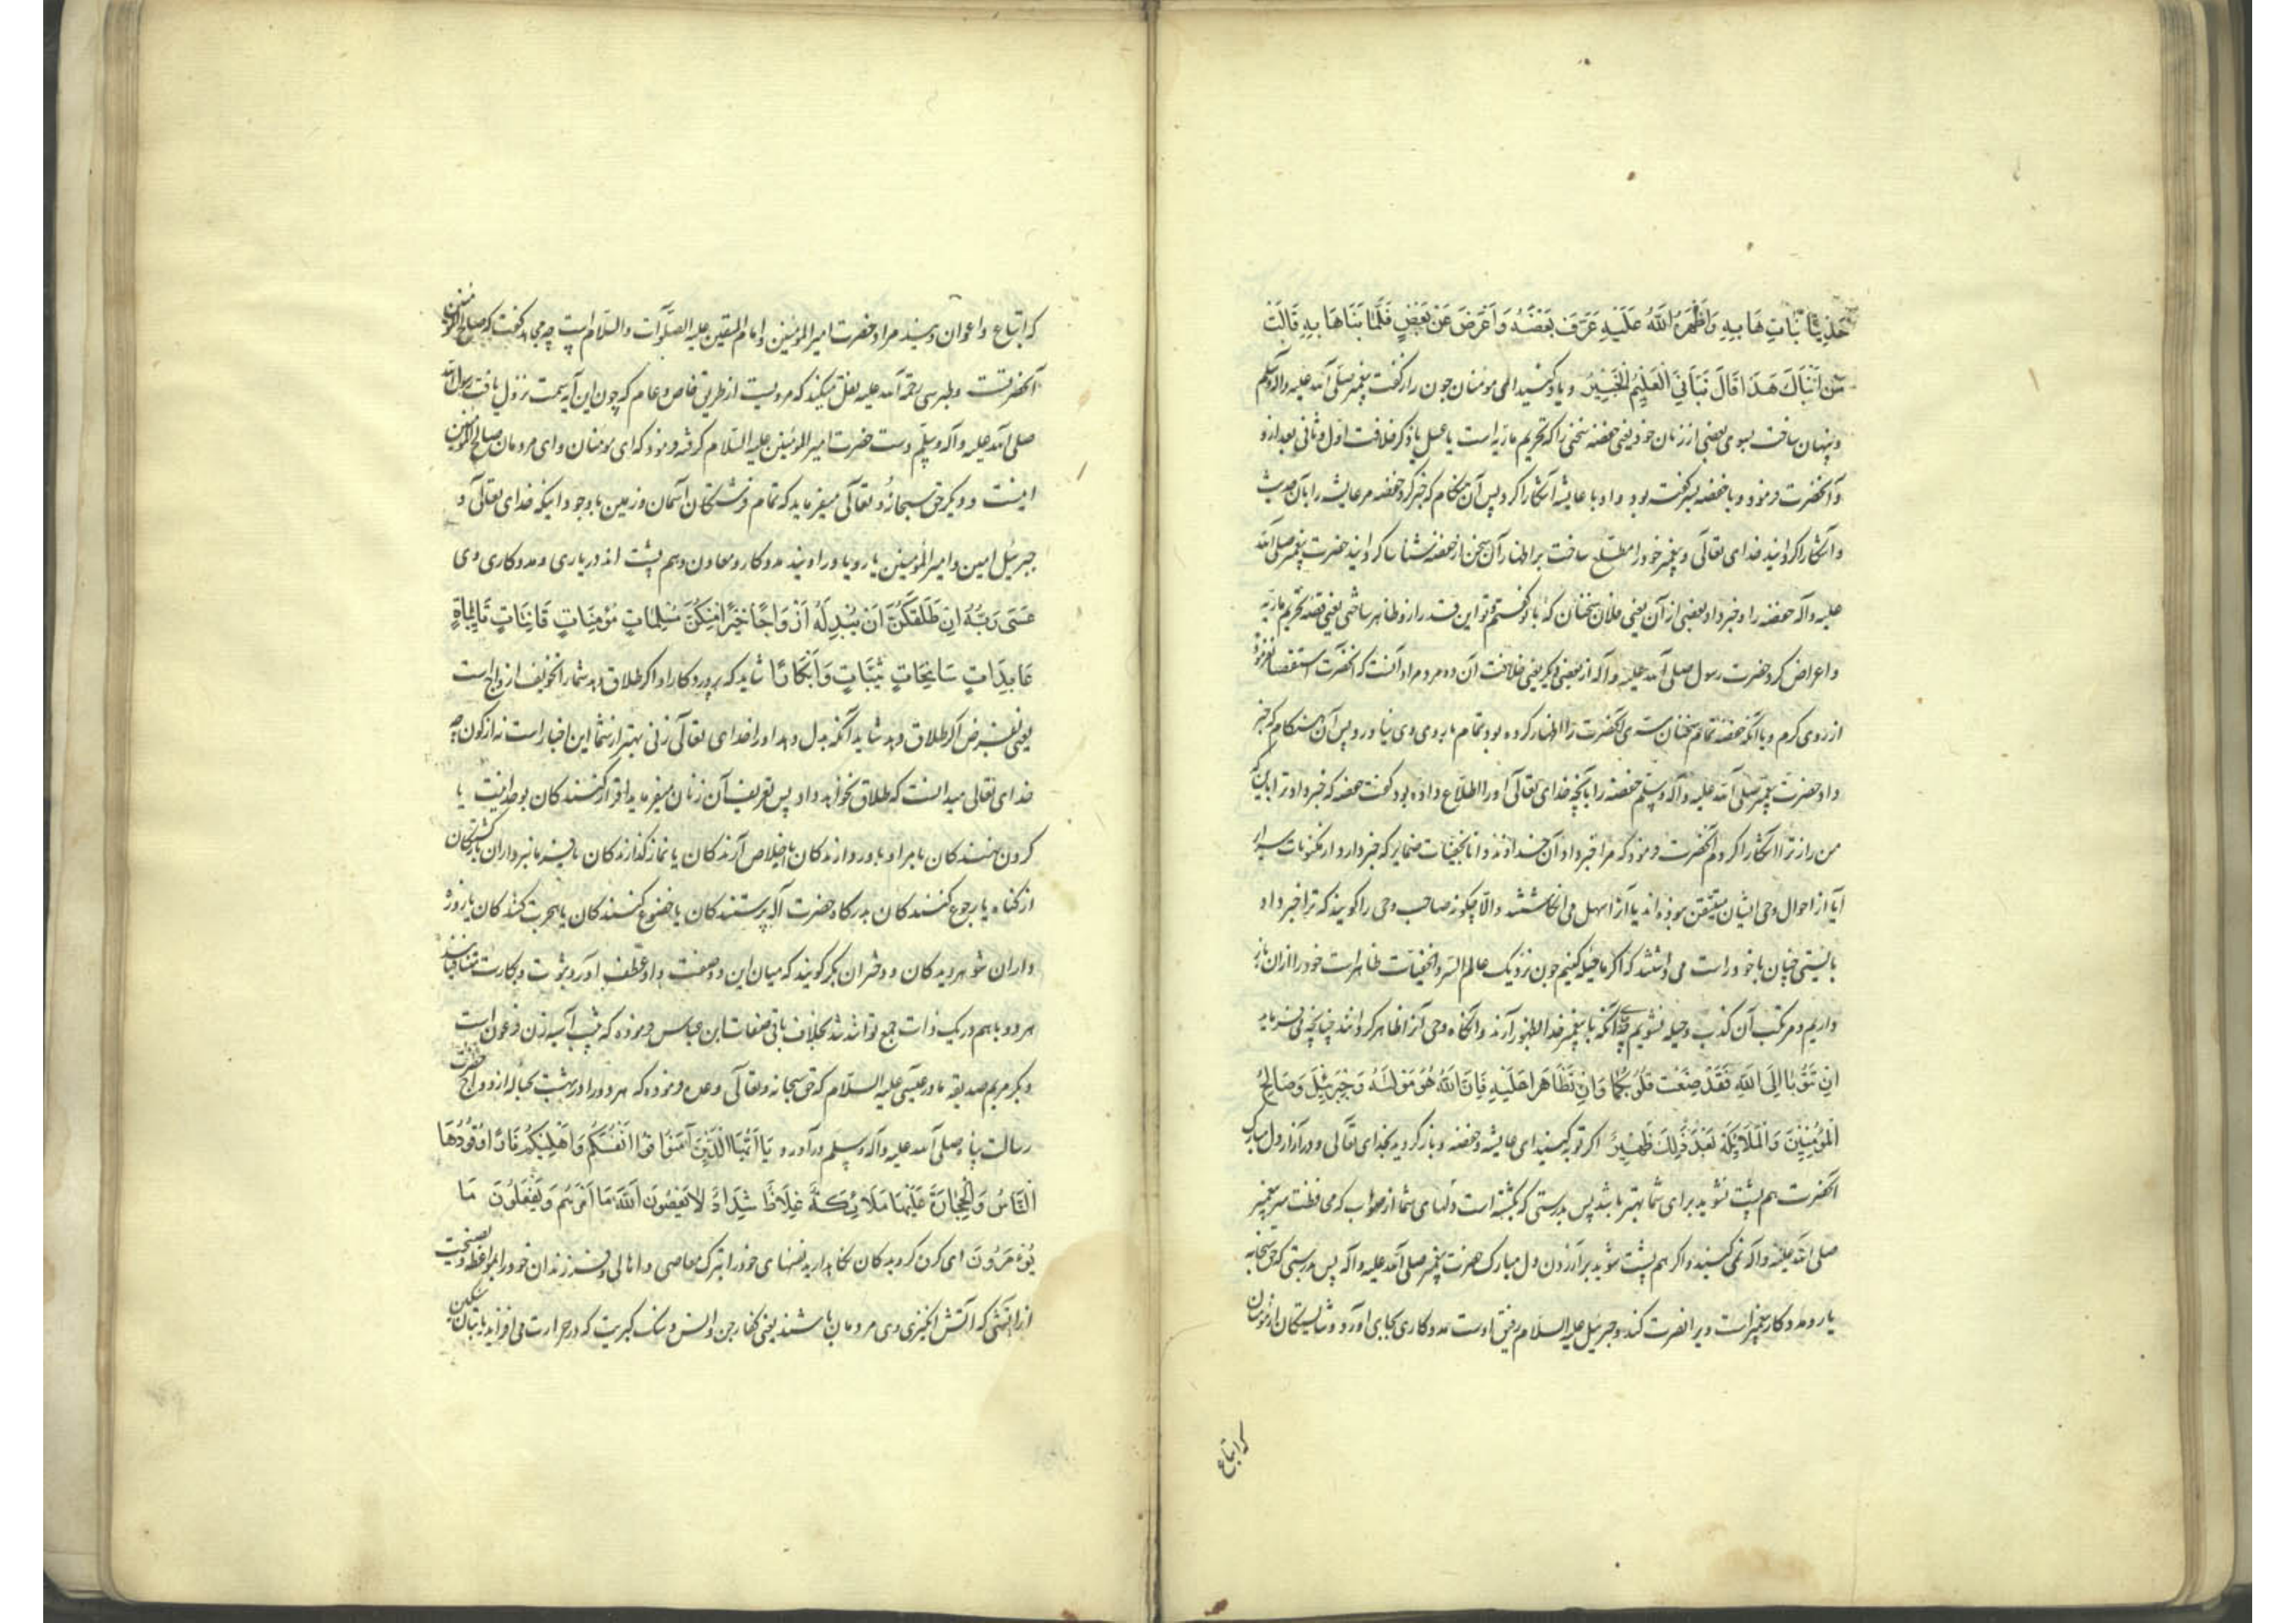 حَدِيثًا نَبَّاَتْ هَا بِهِ وَاَظْهَرَهُ اللَّهُ عَلَيْهِ عَرَّفَ بَعْضَهُ وَاَعْرَضَ عَنْ بَعْضٍ فَلَمَّا نَبَّاهَا بِهِ قَالَتْ
مَنْ اَنْبَاَكَ هَذَا قَالَ نَبَّاَنِيَ الْعَلِيمُ الْخَبِيرُ و یاد کنید ای مومنان چون راز گفت پیغمبر صلی الله علیه وآله وسلم
و پنهان ساخت بسوی بعضی از زنان خود یعنی حفصه سخنی را که تحریم ماریه است یا عسل یا ذکر خلافت اول و ثانی بعد از و
و آنحضرت فرمود و با حفصه بسر گفته بود و او با عایشه آشکارا کرد پس آن هنگام که خبر کرد حفصه مر عایشه را بآن حدیث
و آشکارا کردانید خدای تعالی و پیغمبر خود را مطلع ساخت بر اظهار آن سخن از حفصه شناسا کردانید حضرت پیغمبر صلی الله
علیه وآله حفصه را و خبر داد بعضی از آن یعنی فلان سخنان که با تو گفتم تو این قدر از و ظاهر ساختی یعنی قصه تحریم ماریه
و اعراض کرد حضرت رسول صلی الله علیه وآله از بعضی دیگر یعنی خلافت آن دو مرد مراد آنست که آنحضرت استقصا نفرمود
از روی کرم و با آنکه حفصه تمام سخنان سری آنحضرت را اظهار کرده بود تمام بروی وی نیاورد پس آن هنگام که خبر
داد حضرت پیغمبر صلی الله علیه وآله وسلم حفصه را بآنچه خدای تعالی او را اطلاع داده بود گفت حفصه که خبر داد ترا باین که
من راز ترا آشکارا کردم آنحضرت فرمود که مرا خبر داد آن خداوند دانا بخفیات ضمایر که خبر دارد از مکنونات سرایر
آیا از احوال وحی ایشان متیقن نبوده اند یا آنرا سهل می انگاشتند والا چگونه صاحب وحی را گویند که ترا خبر داد
بایستی چنان با خود راست می داشتند که اگر ما حیله کنیم چون نزدیک عالم السر والخفیات ظاهر است خود را ازان باز
داریم و مرتکب آن کذب و حیله نشویم چه آنکه با پیغمبر خدا بظهور آرند و آنگاه وحی آنرا ظاهر کرداند چنانچه می فرماید
اِنْ تَتُوبَا اِلَى اللَّهِ فَقَدْ صَغَتْ قُلُوبُكُمَا وَاِنْ تَظَاهَرَا عَلَيْهِ فَاِنَّ اللَّهَ هُوَ مَوْلَيهُ وَجِبْرَئِيلَ وَصَالِحُ
الْمُؤْمِنِينَ وَالْمَلَائِكَةُ بَعْدَ ذَلِكَ ظَهِيرٌ اکر توبه کنید ای عایشه و حفصه و بازگردید بخدای تعالی و در آزار دل مبارک
آنحضرت هم پشت نشوید برای شما بهتر باشد پس بدرستی که بگشته است دلهای شما از صواب که محافظت سر پیغمبر
صلی الله علیه وآله نمی کنید و اکر هم پشت شوید بر آزردن دل مبارک حضرت پیغمبر صلی الله علیه وآله پس بدرستی که حق سبحانه
یار و مددکار پیغمبر است ویرا نصرت کند و جبرئیل علیه السلام رفیق اوست مددکاری بجای آورد و شایستگان از مومنان
که اتباع
که اتباع و اعوان ویند مراد حضرت امیر المومنین و امام المتقین علیه الصلوات والسلام است چه مجاهد گفت که صالح المومنین
آنحضرتست و طبرسی رحمة الله علیه نقل میکند که مرویست از طریق خاص و عام که چون این آیه سمت نزول یافت رسول الله
صلی الله علیه وآله وسلم دست حضرت امیر المومنین علیه السلام گرفته فرمود که ای مومنان و ای مردمان صالح المومنین
اینست و دیگر حق سبحانه و تعالی میفرماید که تمام فرشتگان آسمان و زمین با وجود اینکه خدای تعالی و
جبرئیل امین و امیر المومنین یار و یاور اویند مددکار و معاون و هم پشت اند در یاری و مددکاری وی
عَسَى رَبُّهُ اِنْ طَلَّقَكُنَّ اَنْ يُبْدِلَهُ اَزْوَاجًا خَيْرًا مِنْكُنَّ مُسْلِمَاتٍ مُؤْمِنَاتٍ قَانِتَاتٍ تَائِبَاتٍ
عَابِدَاتٍ سَائِحَاتٍ ثَيِّبَاتٍ وَاَبْكَارًا شاید که پروردکار او اکر طلاق دهد شما را تخویف ازواج است
یعنی بفرض اکر طلاق دهد شاید آنکه بدل دهد او را خدای تعالی زنی بهتر از شما این اخبار است نه از کون چه
خدای تعالی میدانست که طلاق نخواهد داد پس تعریف آن زنان میفرماید اقرار کنندکان بوحدانیت یا
کردن نهندکان بامر او باور دارندکان باخلاص آرندکان یا نماز گذارندکان یا فرمانبرداران بازگشتکان
از کناه یا رجوع کنندکان بدرکاه حضرت آله پرستندکان یا خضوع کنندکان یا هجرت کنندکان یا روزه
داران شوهر دیدکان و دختران بکر گویند که میان این دو صفت واو عطف آورد ثیوبت و بکارت متنافیانند
هر دو باهم در یک ذات جمع نتواند شد بخلاف باقی صفات ابن عباس فرموده که ثیب آسیه زن فرعون است
و بکر مریم صدیقه مادر عیسی علیه السلام که حق سبحانه و تعالی وعده فرموده که هر دو را در بهشت بحباله ازدواج حضرت
رسالت پناه صلی الله علیه وآله وسلم درآورد يَا اَيُّهَا الَّذِينَ آمَنُوا قُوا اَنْفُسَكُمْ وَاَهْلِيكُمْ نَارًا وَقُودُهَا
النَّاسُ وَالْحِجَارَةُ عَلَيْهَا مَلَائِكَةٌ غِلَاظٌ شِدَادٌ لَا يَعْصُونَ اللَّهَ مَا اَمَرَهُمْ وَيَفْعَلُونَ مَا
يُؤْمَرُونَ ای گروه گرویدکان نگاه دارید نفسهای خود را بترک معاصی و اهالی و فرزندان خود را بمواعظ و نصیحت
از آتشی که آتش انگیزی وی مردمان باشند یعنی کفار جن و انس و سنک کبریت که در حرارت می افزاید یا بتان سنکین